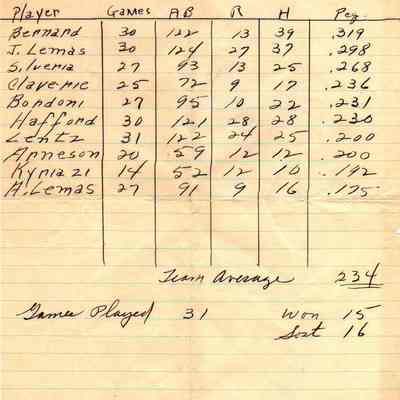 Player Games AB R H Peg.
Bernard 30 122 13 39 .319
J. Lemas 30 124 27 37 .298
Silveria 27 93 13 25 .268
Claverie 25 72 9 17 .236
Bondoni 27 95 10 22 .231
Hafford 30 121 28 28 .230
Lentz 31 122 24 25 .200
Arneson 20 59 12 12 .200
Kyriazi 14 52 12 10 .192
A. Lemas 27 91 9 16 .175
Team Average 234
Games Played 31 Won 15
Lost 16